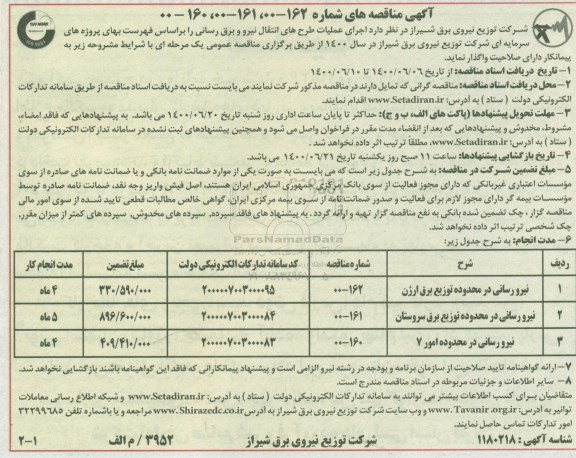 آگهی مناقصه های شماره ۱۶۲-۰۰، ۱۶۱-۰۰، ۱۶۰-۰۰
شرکت توزیع نیروی برق شیراز در نظر دارد اجرای عملیات طرح های انتقال نیرو و برق رسانی را براساس فهرست بهای پروژه های
سرمایه ای شرکت توزیع نیروی برق شیراز در سال ۱۴۰۰ از طریق برگزاری مناقصه عمومی یک مرحله ای با شرایط مشروحه زیر به
پیمانکار دارای صلاحیت واگذار نماید.
۱- تاریخ دریافت اسناد مناقصه: از تاریخ ۱۴۰۰/۰۶/۰۶ تا ۱۴۰۰/۰۶/۱۰
۲- محل دریافت اسناد مناقصه: مناقصه گرانی که تمایل دارند در مناقصه مذکور شرکت نمایند می بایست نسبت به دریافت اسناد مناقصه از طریق سامانه تدارکات
الکترونیکی دولت ( ستاد ) به آدرس: www.Setadiran.ir اقدام نمایند.
۳- مهلت تحویل پیشنهادها (پاکت های الف، ب و ج): حداکثر تا پایان ساعت اداری روز شنبه تاریخ ۱۴۰۰/۰۶/۲۰ می باشد. به پیشنهادهایی که فاقد امضاء،
مشروط، مخدوش و پیشنهادهایی که بعد از انقضاء مدت مقرر در فراخوان واصل می شود و همچنین پیشنهادهای ثبت نشده در سامانه تدارکات الکترونیکی دولت
( ستاد ) به آدرس: www.Setadiran.ir، مطلقاً ترتیب اثر داده نخواهد شد.
۴- تاریخ بازگشایی پیشنهادها: ساعت ۱۱ صبح روز یکشنبه تاریخ ۱۴۰۰/۰۶/۲۱ می باشد.
۵- مبلغ تضمین شرکت در مناقصه: به شرح جدول زیر است که می بایست به صورت یکی از موارد ضمانت نامه بانکی و یا ضمانت نامه های صادره از سوی
مؤسسات اعتباری غیربانکی که دارای مجوز فعالیت از سوی بانک مرکزی جمهوری اسلامی ایران هستند، اصل فیش واریز وجه نقد، ضمانت نامه صادره توسط
مؤسسات بیمه گر دارای مجوز لازم برای فعالیت و صدور ضمانت نامه از سوی بیمه مرکزی ایران، گواهی خالص مطالبات قطعی تایید شده از سوی امور مالی
مناقصه گزار، چک تضمین شده بانکی به نفع مناقصه گزار تهیه و ارائه گردد. به پیشنهاد های فاقد سپرده، سپرده های مخدوش، سپرده های کمتر از میزان مقرر،
چک شخصی ترتیب اثر داده نخواهد شد.
۶- مدت انجام: به شرح جدول زیر:
ردیف شرح شماره مناقصه کد سامانه تدارکات الکترونیکی دولت مبلغ تضمین مدت انجام کار
۱ نیرو رسانی در محدوده توزیع برق ارژن ۰۰-۱۶۲ ۲۰۰۰۰۰۷۰۰۳۰۰۰۰۹۵ ۳۳۰/۵۹۰/۰۰۰ ۴ ماه
۲ نیرو رسانی در محدوده توزیع برق سروستان ۰۰-۱۶۱ ۲۰۰۰۰۰۷۰۰۳۰۰۰۰۸۴ ۸۹۶/۶۰۰/۰۰۰ ۵ ماه
۳ نیرو رسانی در محدوده امور ۷ ۰۰-۱۶۰ ۲۰۰۰۰۰۷۰۰۳۰۰۰۰۸۳ ۴۰۹/۴۱۰/۰۰۰ ۴ ماه
۷- ارائه گواهینامه تایید صلاحیت از سازمان برنامه و بودجه در رشته نیرو الزامی است و پیشنهاد پیمانکارانی که فاقد این گواهینامه باشند بازگشایی نخواهد شد.
۸- سایر اطلاعات و جزئیات مربوطه در اسناد مناقصه مندرج است.
متقاضیان برای کسب اطلاعات بیشتر می توانند به سامانه تدارکات الکترونیکی دولت ( ستاد ) به آدرس: www.Setadiran.ir و شبکه اطلاع رسانی معاملات
توانیر به آدرس: www.Tavanir.org.ir و وب سایت شرکت توزیع نیروی برق شیراز به آدرس www.Shirazedc.co.ir مراجعه و یا باشماره تلفن ۳۲۲۹۹۶۸۵
امور تدارکات تماس حاصل نمایند.
شناسه آگهی: ۱۱۸۰۲۱۸ شرکت توزیع نیروی برق شیراز ۳۹۵۲ / م الف ۲-۱
ParsNamadData